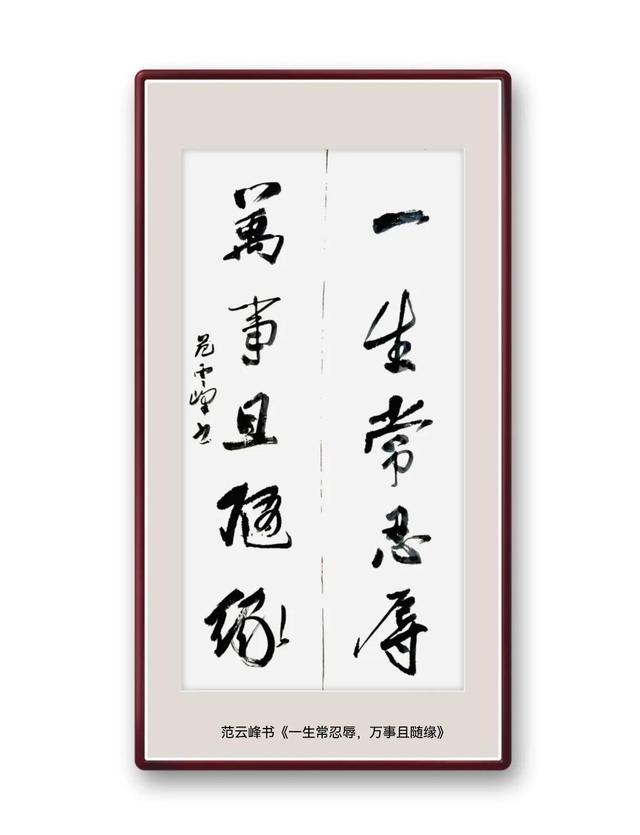 一生常忍辱
萬事且隨緣
范雲峰书
范云峰书《一生常忍辱，万事且随缘》